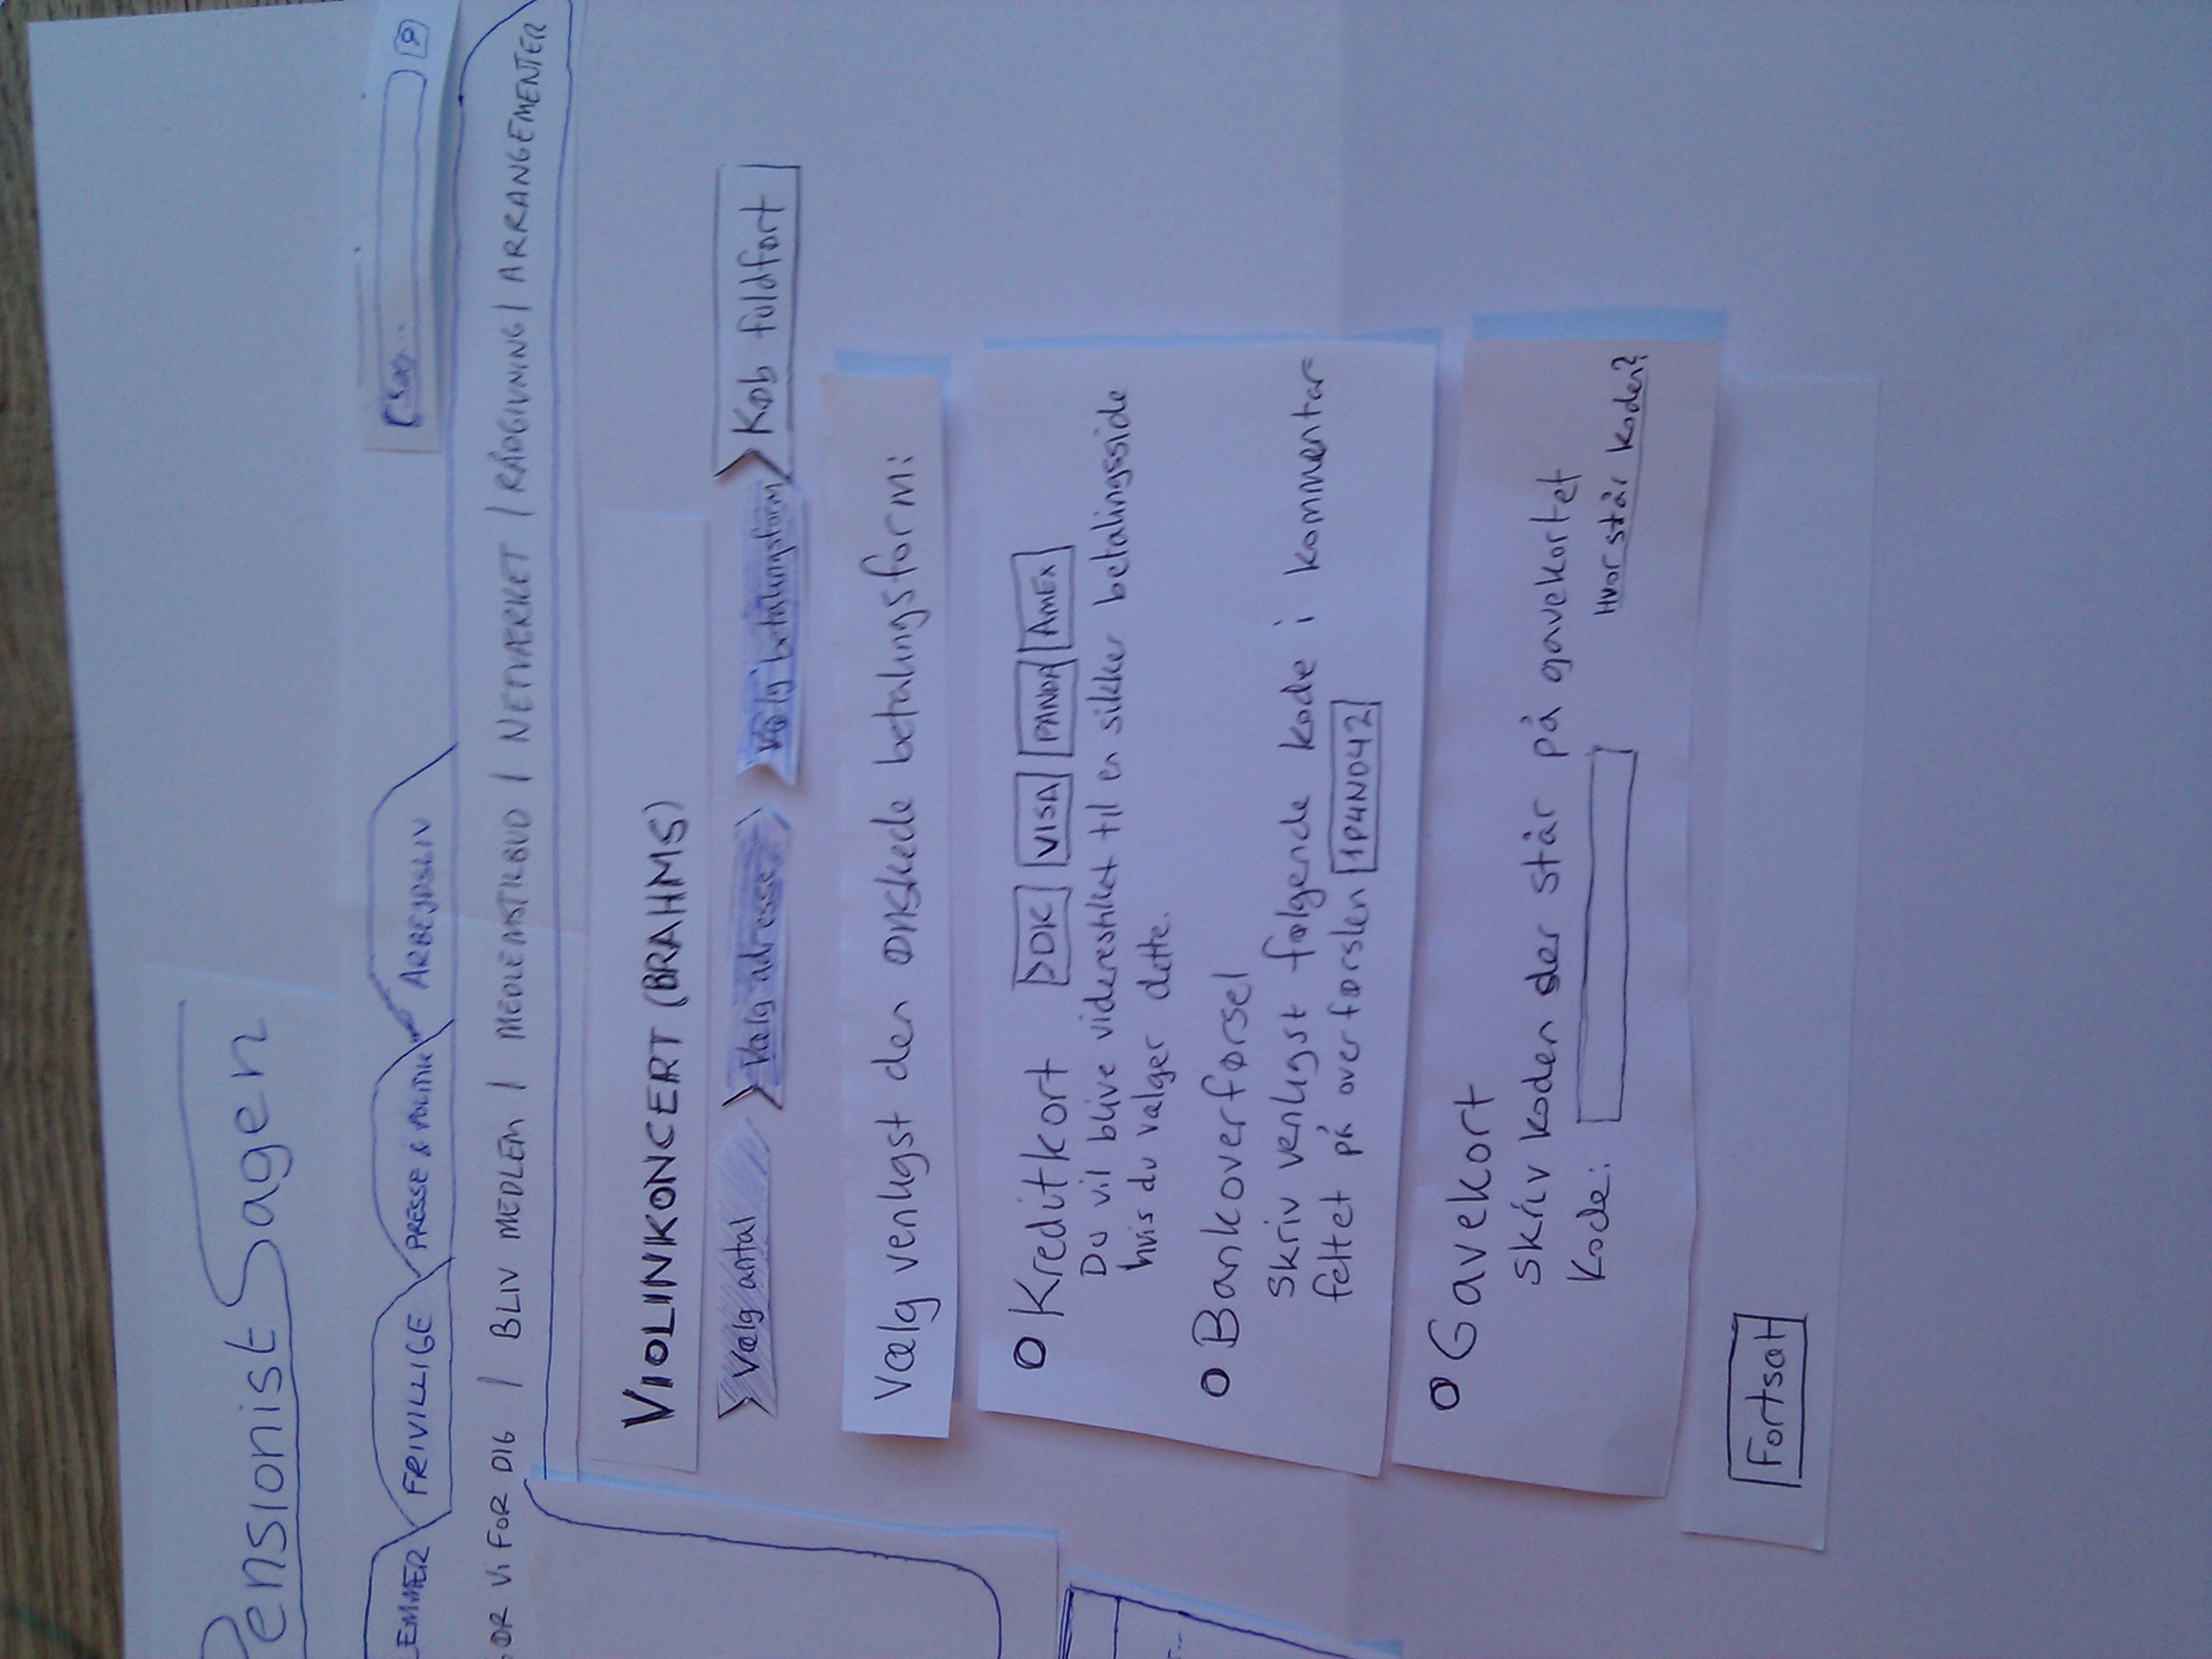 PensionistSagen
Søg...
EMMER FRIVILLIGE PRESSE & POLITIK ARBEJDSLIV
GØR VI FOR DIG | BLIV MEDLEM | MEDLEMSTILBUD | NETVÆRKET | RÅDGIVNING | ARRANGEMENTER
VIOLINKONCERT (BRAHMS)
Vælg antal Vælg adresse Vælg betalingsform Køb fuldført
Vælg venligst den ønskede betalingsform:
Kreditkort DK VISA PANDA AMEX
Du vil blive viderestillet til en sikker betalingsside
hvis du vælger dette.
Bankoverførsel
Skriv venligst følgende kode i kommentar
feltet på overførslen 1P4ND42
Gavekort
Skriv koden der står på gavekortet
Kode: Hvor står koden?
Fortsæt